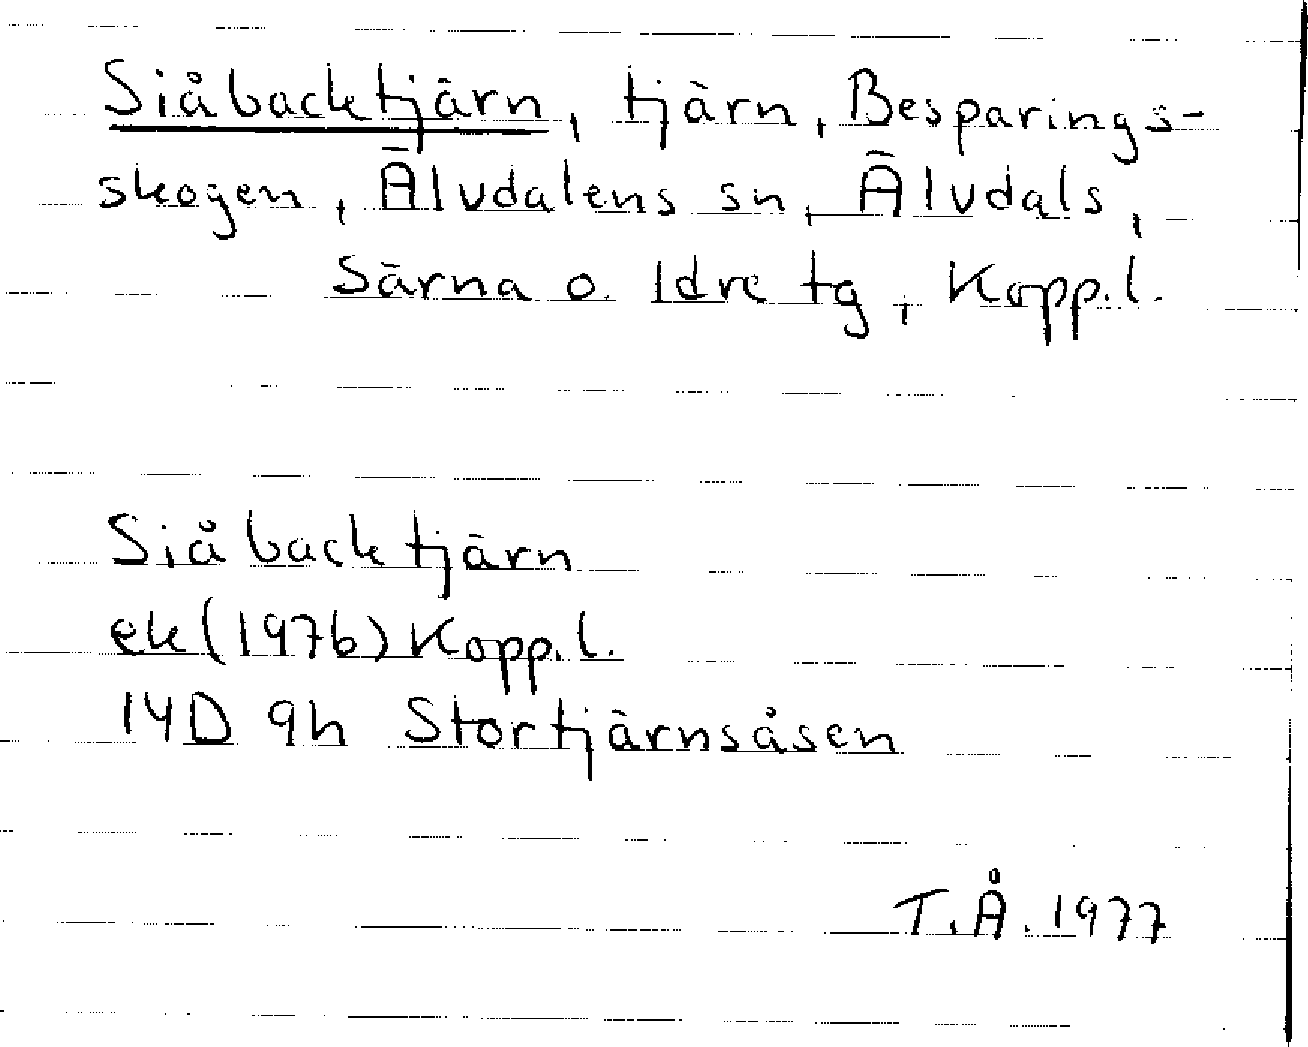 Siåbacktjärn, tjärn, Besparings-
skogen, Älvdalens sn, Älvdals,
Särna o. Idre tg, Kopp.l.
Siåbacktjärn
ek (1976) Kopp.l.
14D 9h Stortjärnsåsen
T.Å. 1977